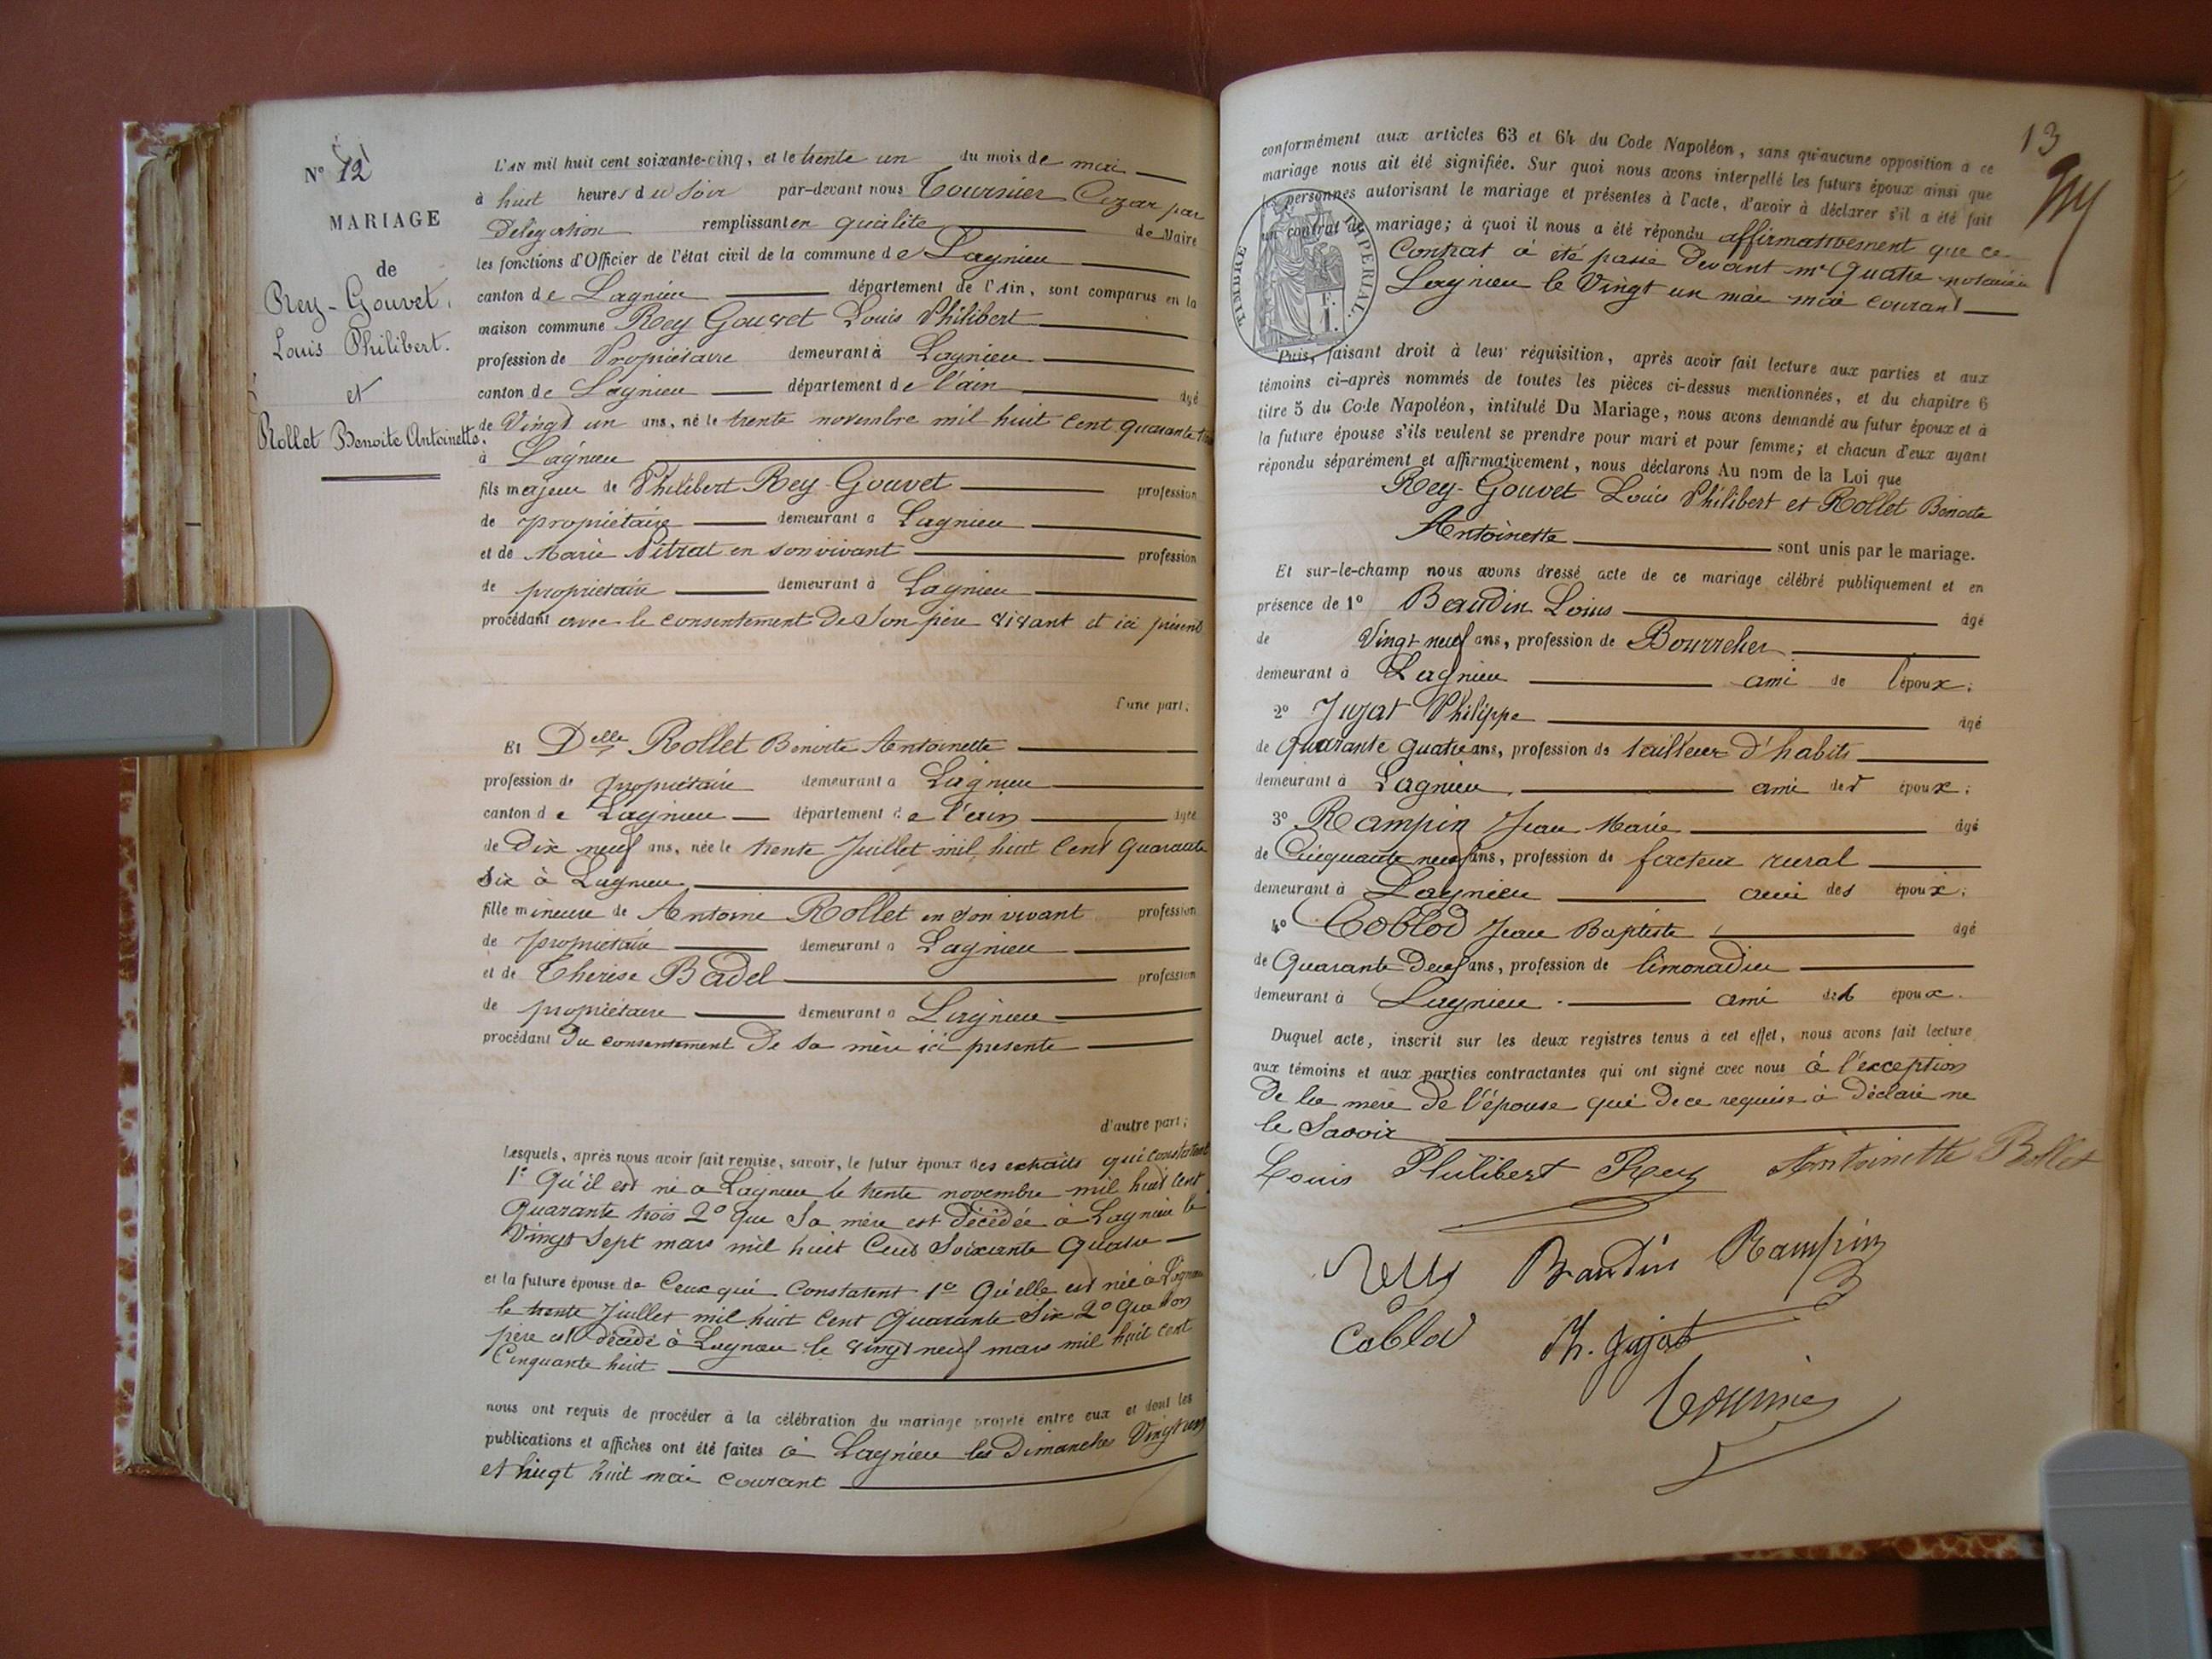 N° 12
MARIAGE
de
Rey-Gouvet.
Louis Philibert.
et
Rollet Benoite Antoinette.
L'AN mil huit cent soixante-cinq, et le trente un du mois de mai
à huit heures du soir par-devant nous Tournier Cezar par
Délégation remplissant en qualité de Maire
les fonctions d'Officier de l'état civil de la commune de Lagnieu
canton de Lagnieu département de l'Ain, sont comparus en la
maison commune Rey Gouvet Louis Philibert
profession de Propriétaire demeurant à Lagnieu
canton de Lagnieu département de l'ain âgé
de Vingt un ans, né le trente novembre mil huit cent quarante trois
à Lagnieu
fils majeur de Philibert Rey Gouvet profession
de propriétaire demeurant a Lagnieu
et de Marie Pitrat en son vivant profession
de propriétaire demeurant à Lagnieu
procédant avec le consentement de Son père vivant et ici présent
d'une part;
Et Delle Rollet Benoite Antoinette
profession de propriétaire demeurant a Lagnieu
canton de Lagnieu département de l'ain âgée
de Dix neuf ans, née le trente Juillet mil huit Cent quarante
Six à Lagnieu
fille mineure de Antoine Rollet en Son vivant profession
de propriétaire demeurant a Lagnieu
et de Therese Badel profession
de propriétaire demeurant a Lagnieu
procédant Du consentement De Sa mère ici presente
d'autre part;
Lesquels, après nous avoir fait remise, savoir, le futur époux des extraits qui constatent
1° Qu'il est né a Lagnieu le trente novembre mil huit cent
Quarante trois 2° que Sa mère est décédée à Lagnieu le
Vingt Sept mars mil huit Cent Soixante Quatre
et la future épouse de Ceux qui Constatent 1° Qu'elle est née à Lagnieu
le trente Juillet mil huit Cent Quarante Six 2° que Son
père est décédé à Lagnieu le vingt neuf mars mil huit cent
Cinquante huit
nous ont requis de procéder à la célébration du mariage projeté entre eux et dont les
publications et affiches ont été faites à Lagnieu les Dimanches Vingt un
et vingt huit mai courant
13
conformément aux articles 63 et 64 du Code Napoléon, sans qu'aucune opposition à ce
mariage nous ait été signifiée. Sur quoi nous avons interpellé les futurs époux ainsi que
les personnes autorisant le mariage et présentes à l'acte, d'avoir à déclarer s'il a été fait
un contrat de mariage; à quoi il nous a été répondu affirmativement que ce
Contrat à été passé Devant me Quatre notaire à
Lagnieu le Vingt un mai mai courant
TIMBRE IMPÉRIAL.
Puis, faisant droit à leur réquisition, après avoir fait lecture aux parties et aux
témoins ci-après nommés de toutes les pièces ci-dessus mentionnées, et du chapitre 6
titre 5 du Code Napoléon, intitulé Du Mariage, nous avons demandé au futur époux et à
la future épouse s'ils veulent se prendre pour mari et pour femme; et chacun d'eux ayant
répondu séparément et affirmativement, nous déclarons Au nom de la Loi que
Rey-Gouvet Louis Philibert et Rollet Benoite
Antoinette sont unis par le mariage.
Et sur-le-champ nous avons dressé acte de ce mariage célébré publiquement et en
présence de 1° Baudin Loius âgé
de Vingt neuf ans, profession de Bourrelier
demeurant à Lagnieu ami de l'époux;
2° Jujat Philippe âgé
de Quarante quatre ans, profession de tailleur d'habits
demeurant à Lagnieu ami des époux;
3° Rampin Jean Marie âgé
de Cinquante neuf ans, profession de facteur rural
demeurant à Lagnieu ami des époux;
4° Coblod Jean Baptiste âgé
de Quarante Deux ans, profession de limonadier
demeurant à Lagnieu ami des époux.
Duquel acte, inscrit sur les deux registres tenus à cet effet, nous avons fait lecture
aux témoins et aux parties contractantes qui ont signé avec nous à l'exception
De la mère De l'épouse qui De ce requise à Déclaré ne
le Savoir
Louis Philibert Rey Antoinette Rollet
Baudin Rampin
Coblod Ph. Jujat
Tournier